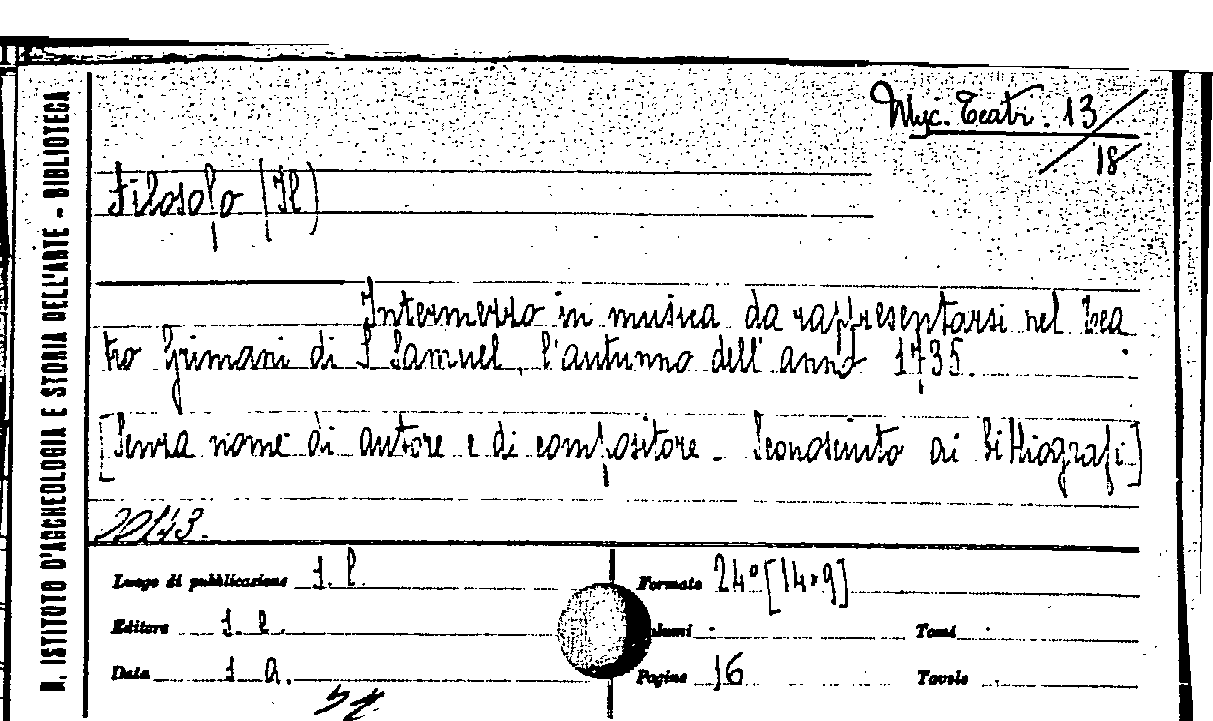 R. ISTITUTO D'ARCHEOLOGIA E STORIA DELL'ARTE - BIBLIOTECA
Teatr. 13
18
Filosofo (Il)
Intermezzo in musica da rappresentarsi nel Tea
tro Grimani di S. Samuel, l'autunno dell'anno 1735.
[Senza nome di autore e di compositore - Sconosciuto ai bibliografi]
20143.
Luogo di pubblicazione s. l.
Formato 24° [14x9]
Editore s. e.
Volumi
Tomi
Data s. a.
Pagine 16
Tavole